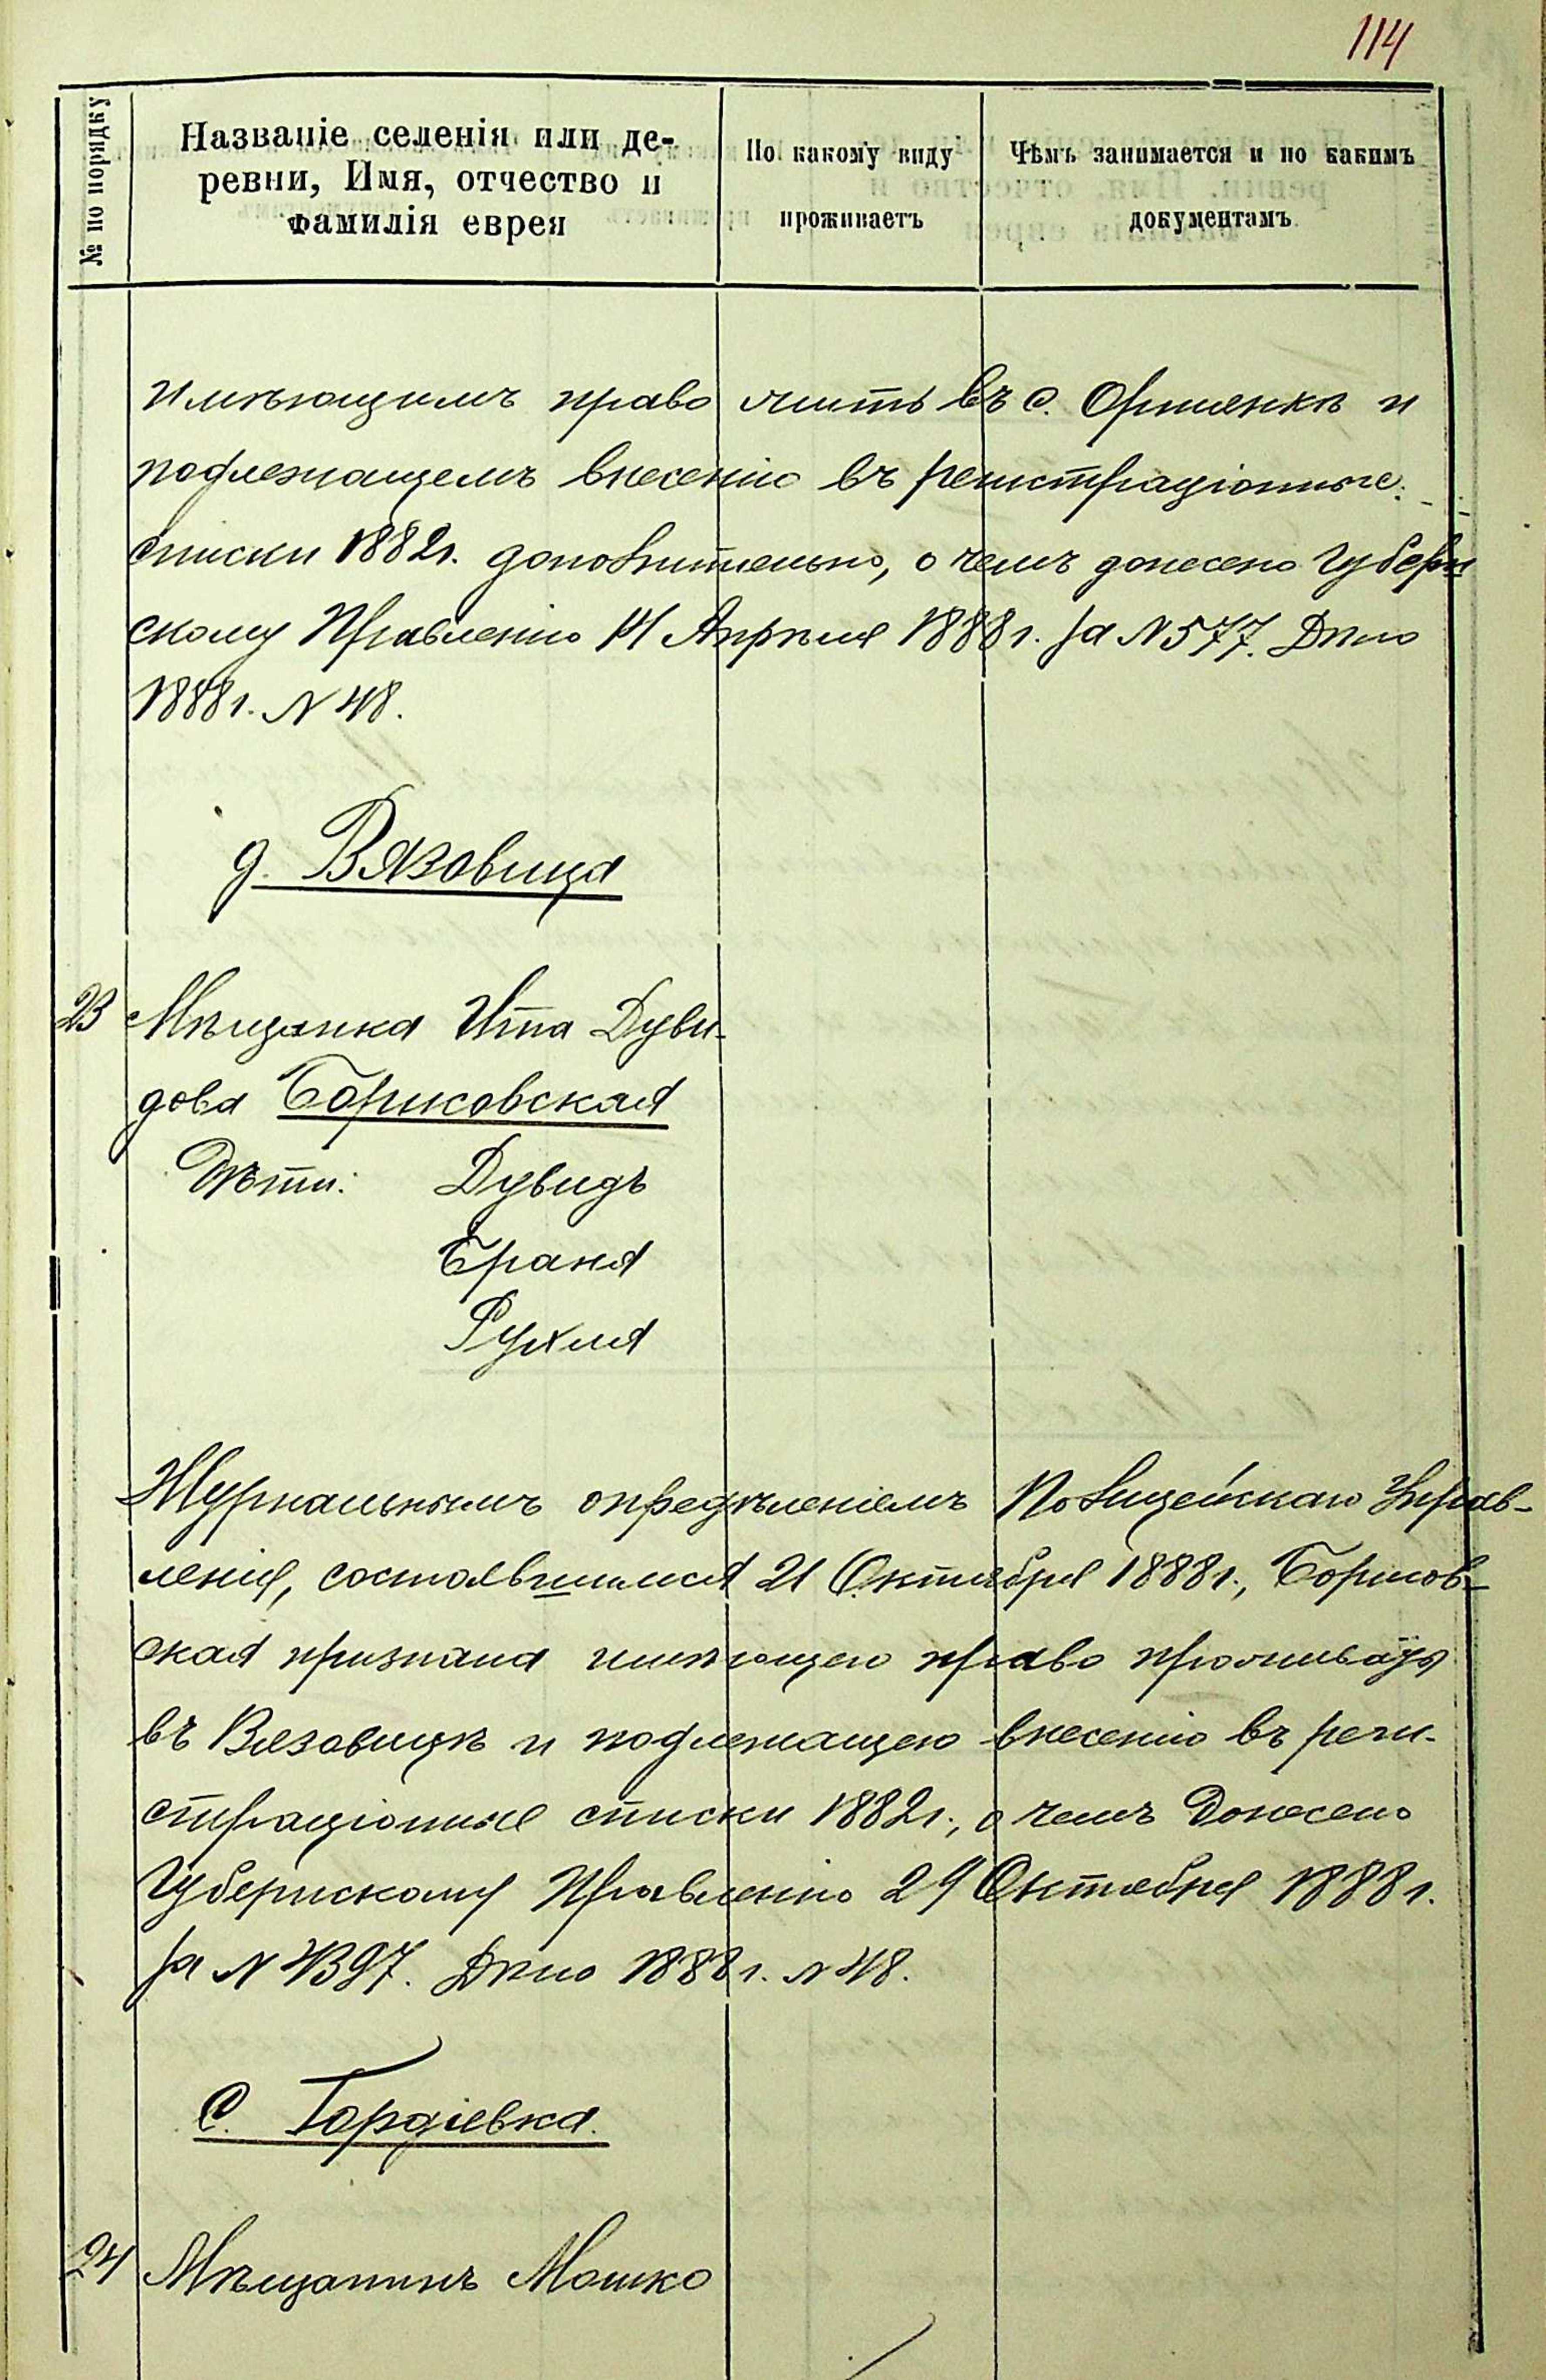 114
№ по порядку
Названіе селенія или де-
ревни, Имя, отчество и
фамилія еврея
По какому виду
проживаетъ
Чѣмъ занимается и по какимъ
документамъ
имѣющимъ право жить въ с. и
подлежащемъ внесенію въ регистраціонные
списки 1882 г. дополнительно, о чемъ донесено Губерн
скому Правленію 14 Апрѣля 1888 г. за N 577. Дѣло
1888 г. N 48.
д. Вязовица
23 Мѣщанка Итта Дуви-
дова Борисовская
Дѣти: Дувидъ
Браня
Рухля
Журнальнымъ опредѣленіемъ Полицейскаго Управ-
ленія, состоявшимся 21 Октября 1888 г., Борисов-
ская признана имѣющею право проживать
въ Вязовицѣ и подлежащею внесенію въ реги-
страціонные списки 1882 г., о чемъ донесено
Губернскому Правленію 29 Октября 1888 г.
за N 4397. Дѣло 1888 г. N 48.
С. Гордіевка.
24 Мѣщанинъ Мошко